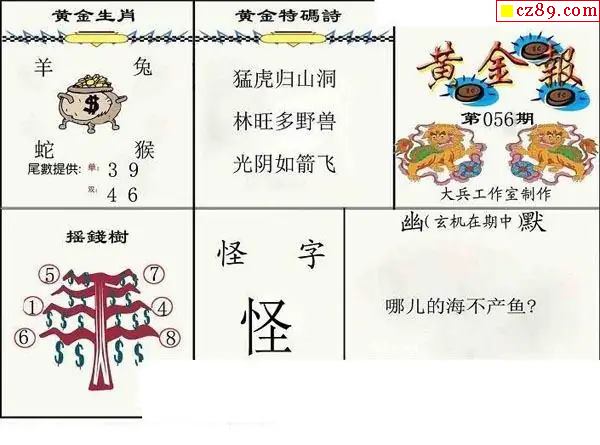 cz89.com
黄金生肖
羊 兔
$
蛇 猴
尾數提供: 单: 3 9
双: 4 6
黄金特碼詩
猛虎归山洞
林旺多野兽
光阴如箭飞
黄金報
第056期
大兵工作室制作
摇錢樹
⑤ ⑦
① ④
⑥ ⑧
$ $ $ $ $ $ $ $ $ $ $ $
怪 字
怪
幽(玄机在期中)默
哪儿的海不产鱼?